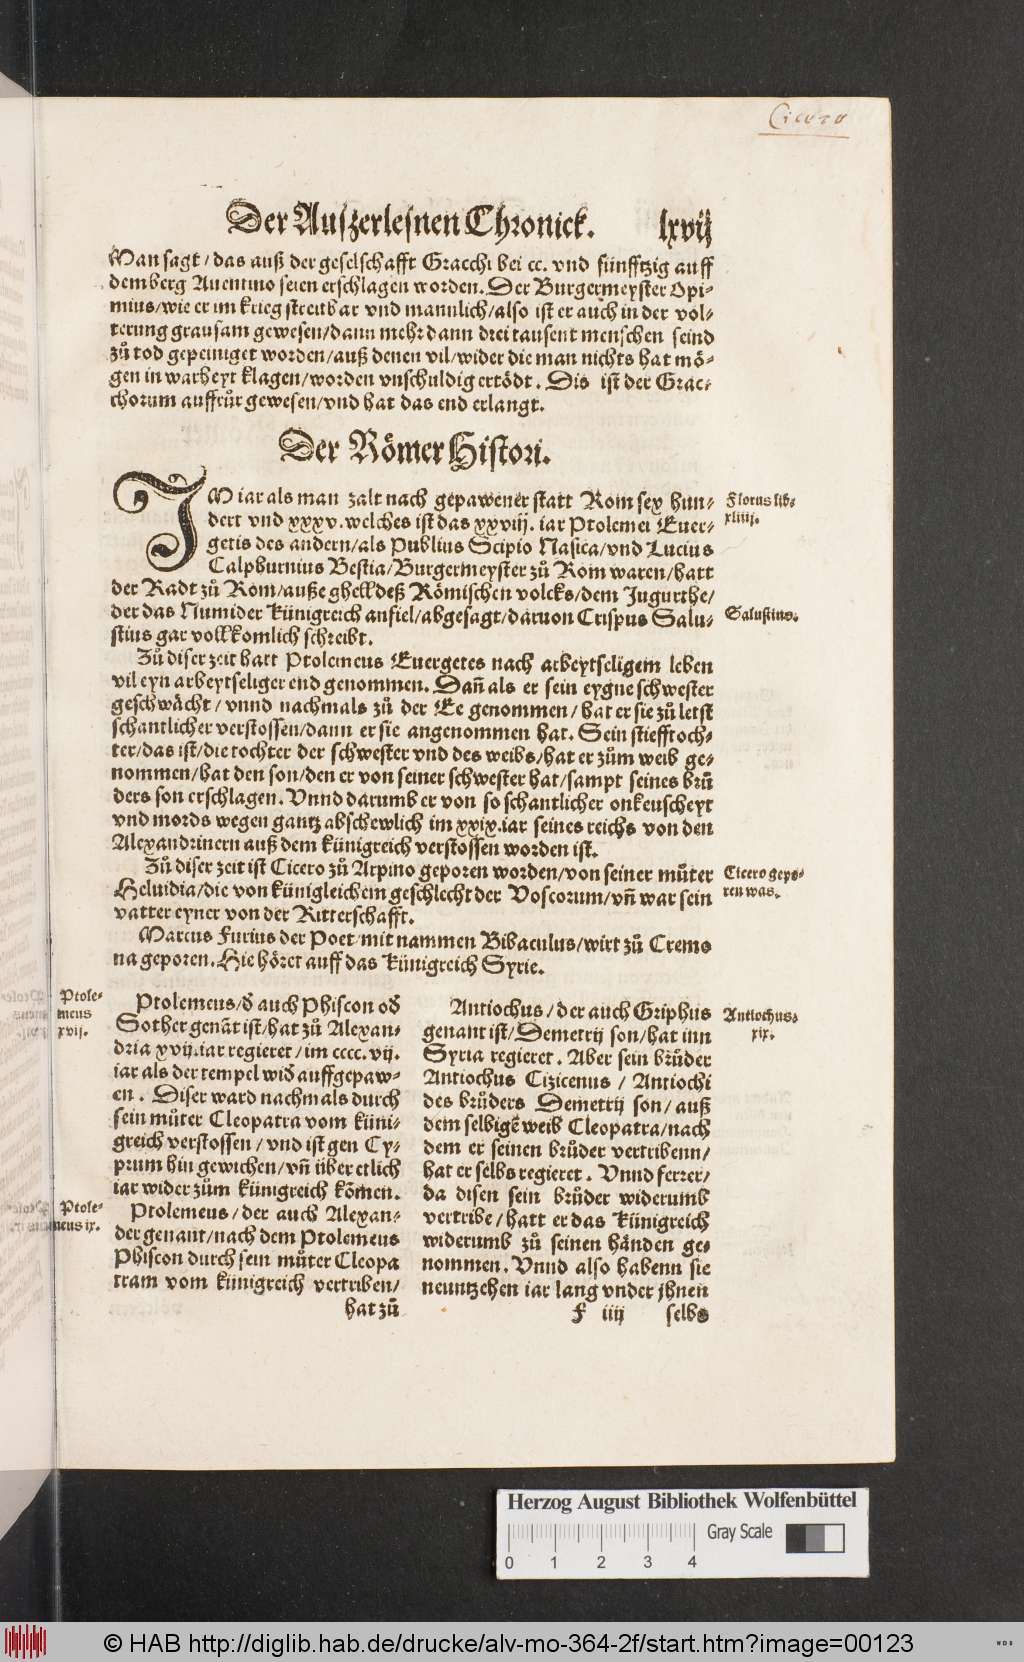 Cicero
Der Auszerlesnen Chronick. lxvij
Man sagt / das auß der geselschafft Gracchi bei cc. vnd fünfftzig auff
demberg Auentino seien erschlagen worden. Der Burgermeyster Opi-
mius/wie er im krieg streitbar vnd mannlich/also ist er auch in der vol-
terung grausam gewesen/dann mehr dann drei tausent menschen seind
zů tod gepeiniget worden/auß denen vil/wider die man nichts hat mö-
gen in warheyt klagen/worden vnschuldig ertödt. Dis ist der Grac-
chorum auffrůr gewesen/vnd hat das end erlangt.
Der Römer Histori.
IM iar als man zalt nach gepawener statt Rom sex hun-
dert vnd xxxv. welches ist das xxviij. iar Ptolemei Euer-
getis des andern/als Publius Scipio Nasica/vnd Lucius
Calphurnius Bestia/Burgermeyster zů Rom waren/hatt
der Radt zů Rom/auße ghell deß Römischen volcks/dem Jugurthe/
der das Numider Künigreich anfiel/abgesagt/daruon Crispus Salu-
stius gar vollkomlich schreibt.
Florus lib-
xliiij.
Salustius.
Zů diser zeit hatt Ptolemeus Euergetes nach arbeytseligem leben
vil eyn arbeytseliger end genommen. Dañ als er sein eygne schwester
geschwächt / vnnd nachmals zů der Ee genommen / hat er sie zů letst
schantlicher verstossen/dann er sie angenommen hat. Sein stiefftoch-
ter/das ist/die tochter der schwester vnd des weibs/hat er zům weib ge-
nommen/hat den son/den er von seiner schwester hat/sampt seines brů
ders son erschlagen. Vnnd darumb er von so schantlicher onkeuscheyt
vnd mords wegen gantz abschewlich im xxix. iar seines reichs von den
Alexandrinern auß dem künigreich verstossen worden ist.
Zů diser zeit ist Cicero zů Arpino geporen worden/von seiner můter
Heluidia/die von künigleichem geschlecht der Voscorum/vñ war sein
vatter eyner von der Ritterschafft.
Cicero gepo-
ren was.
Marcus Furius der Poet mit nammen Bibaculus/wirt zů Cremo
na geporen. Hie höret auff das Künigreich Syrie.
Ptole-
meus
xvij.
Ptolemeus/ď auch Phiscon oď
Sother genãt ist/hat zů Alexan-
dria xvij. iar regieret / im cccc. vij.
iar als der tempel wiď auffgepaw-
en. Diser ward nachmals durch
sein můter Cleopatra vom küni-
greich verstossen / vnd ist gen Cy-
prum hin gewichen/vñ über etlich
iar wider zům künigreich kõmen.
Ptole-
meus ix.
Ptolemeus / der auch Alexan-
der genant/nach dem Ptolemeus
Phiscon durch sein můter Cleopa
tram vom künigreich vertriben/
hat zů
Antiochus / der auch Griphus
genant ist/ Demetrij son/hat inn
Syria regieret. Aber sein brůder
Antiochus Cizicenus / Antiochi
des brůders Demetrij son / auß
dem selbigẽ weib Cleopatra/nach
dem er seinen brůder vertribenn/
hat er selbs regieret. Vnnd ferrer/
da disen sein brůder widerumb
vertribe / hatt er das Künigreich
widerumb zů seinen händen ge-
nommen. Vnnd also habenn sie
neuntzehen iar lang vnder jhnen
F iiij selbs
Antiochus
xix.
Herzog August Bibliothek Wolfenbüttel
Gray Scale
0 1 2 3 4
© HAB http://diglib.hab.de/drucke/alv-mo-364-2f/start.htm?image=00123